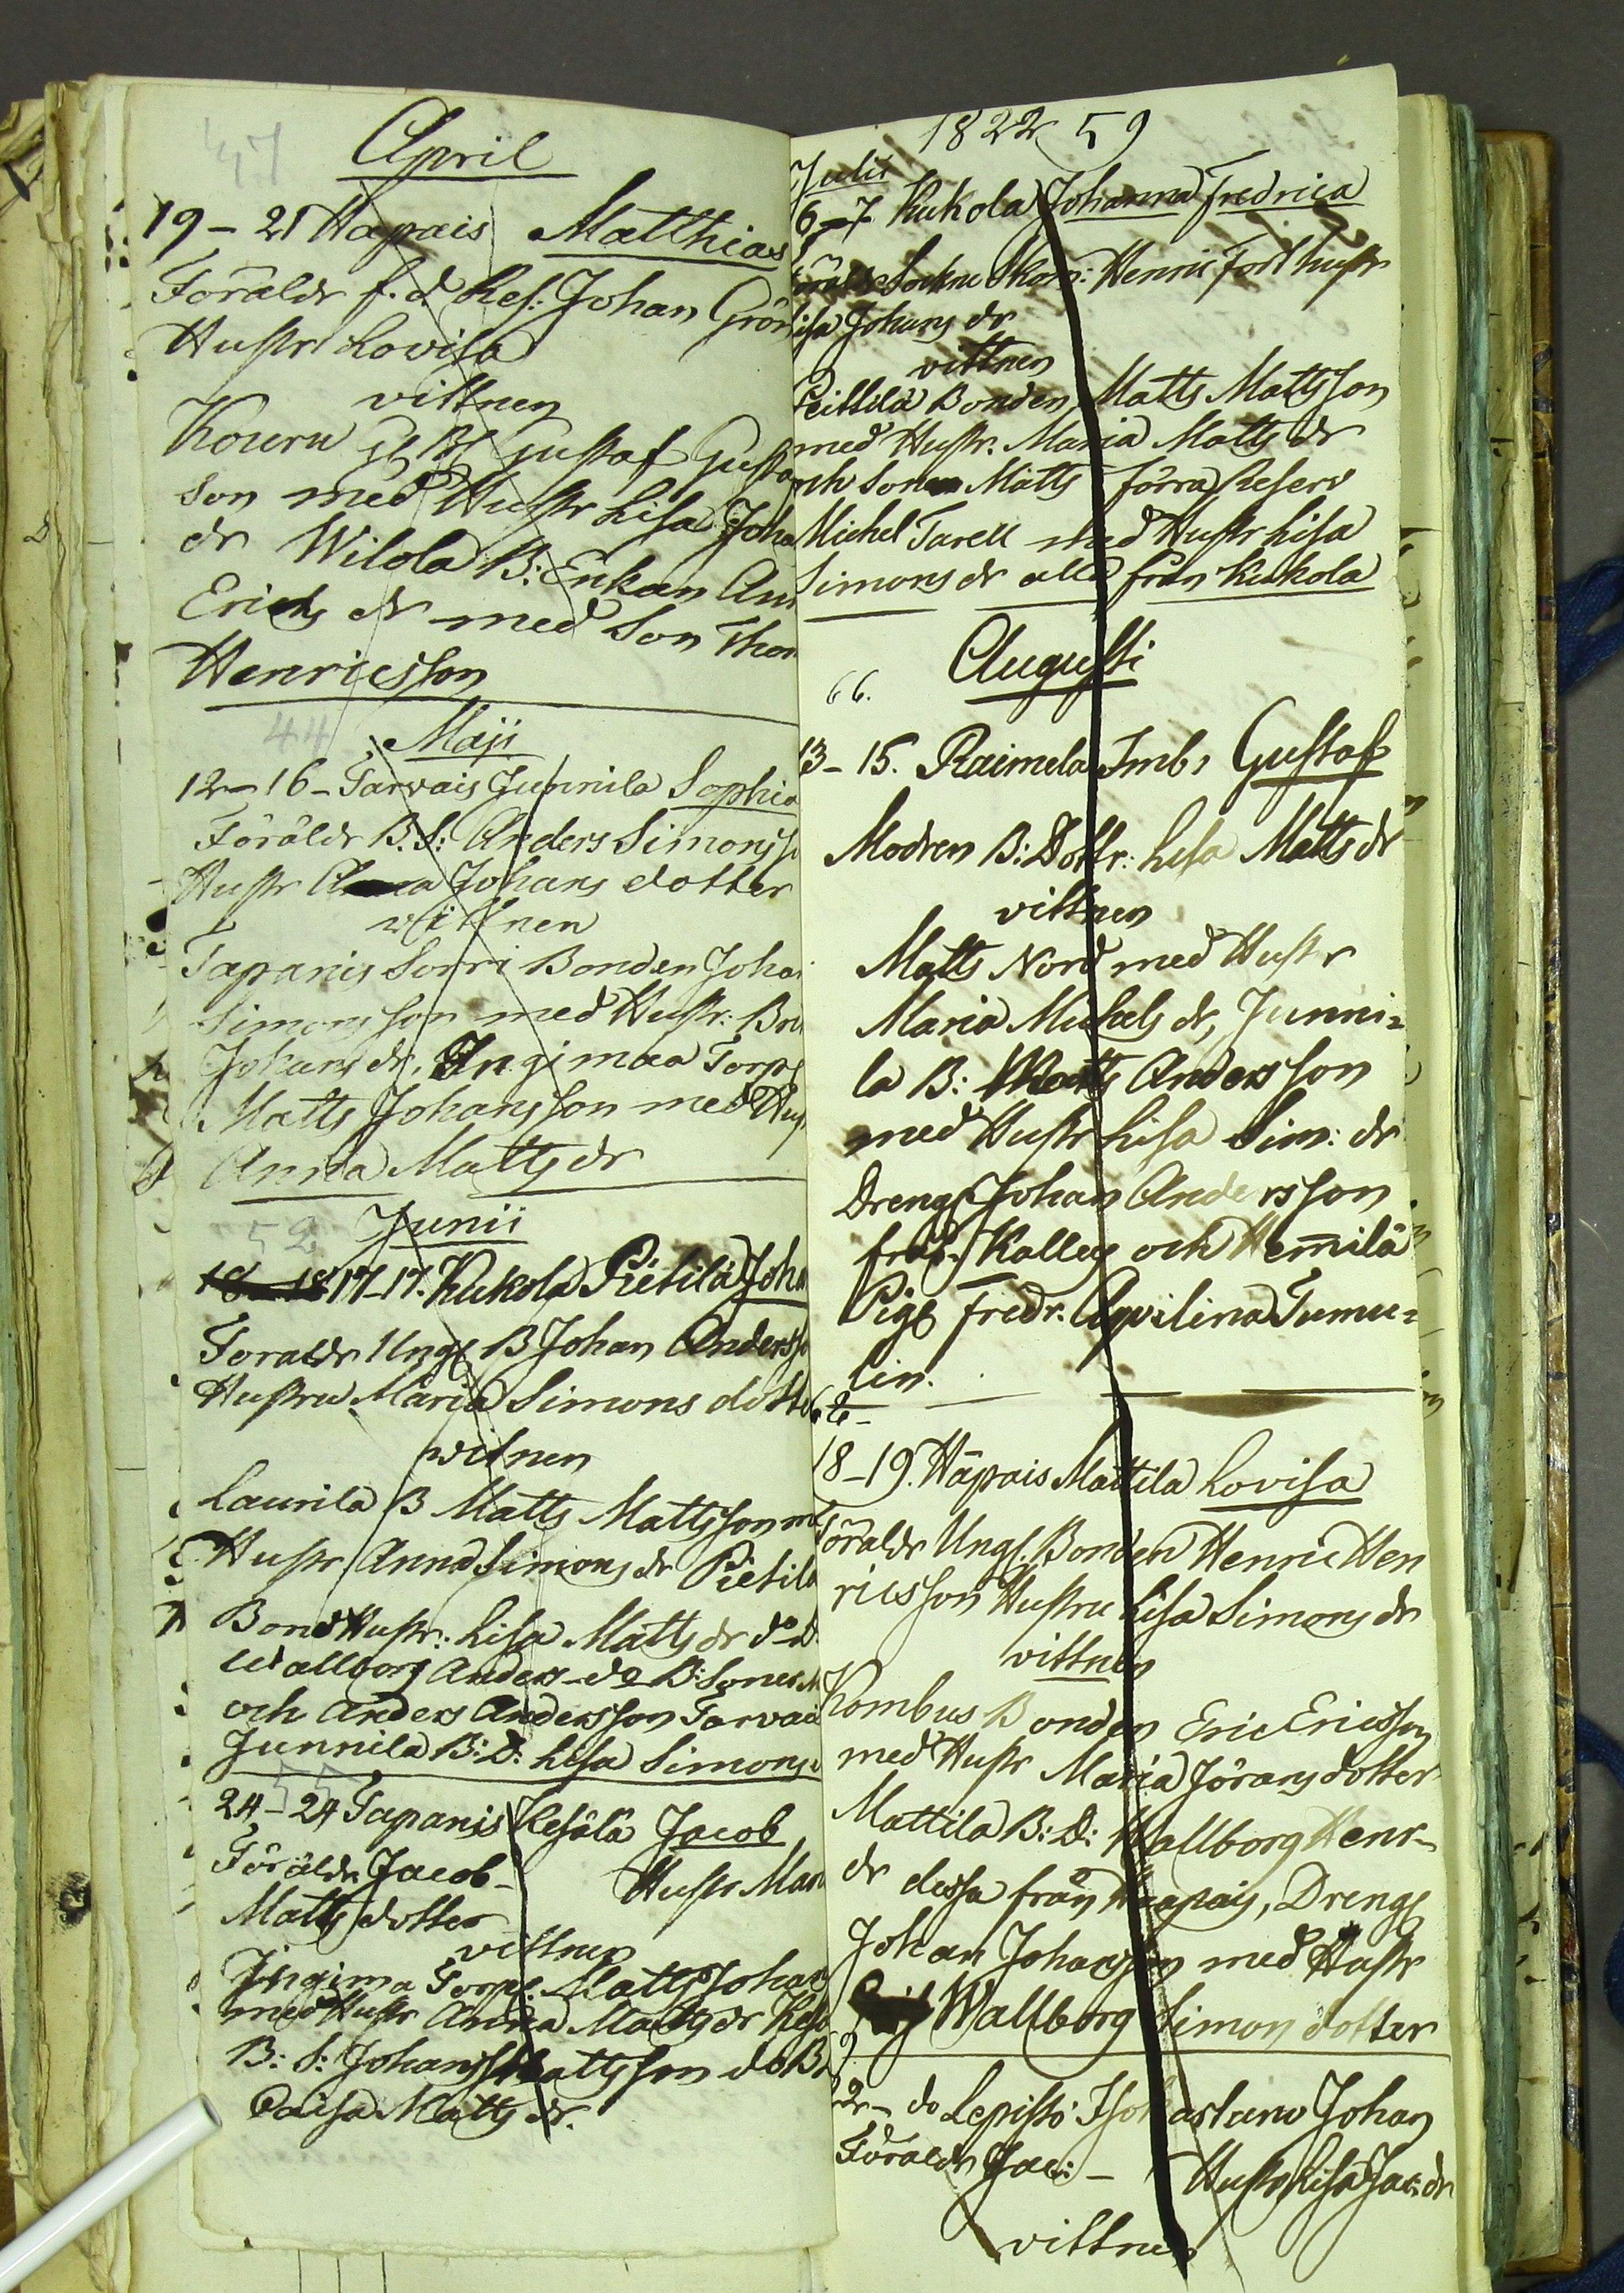 47
April
19 - 21 Hapais Matthias
Föräldr f. d. Res: Johan Grön
Hustr Lovisa
vittnen
Kouru Gustaf Gusta
son med Hustr Lisa Joha
dr Wilola B: Enkan An
Erichs dr med Son Thom
Henricsson
44
Maji
12 - 16 - Tarvais Junnila Sophia
Föräldr B. S: Anders Simonsso
Hustr Johans dotter
vittnen
Tapanis Sorri Bonden Joha
Simonsson med Hustr: Bri
Johans dr, Ingimaa Torp
Matts Johansson med Hus
Anna Matts dr
52
Junii
18 - 18 17-17. Kukola Pietilä Joh
Foraldr Ung B Johan Anderss
Hustru Maria Simons dotte
witnen
Laurila B Matts Mattsson m
Hustr Anna Simons dr Pietila
Bond Hustr: Lisa Matts dr do D.
Wallborg Anders do B: Soner M
och Anders Andersson Tarvai
Junnila B: D: Lisa Simons
55
24 - 24 Tapanis Kesälä Jacob
Föräldr Jacob - Hustr Mar
Matts dotter
vittnen
Jngima Torp. Matts Johan
med Hustr Anna Matts dr Kesä
B: S: Johan Mattsson do B
Caisa Matts dr.
1822 59
Julii
6-7 Kukola Johanna Fredrica
öräldr Sockne Skom: Henric Fort hustr
isa Johans dr
vittnen
Peittilä Bonden Matts Mattsson
med Hustr. Maria Matts dr
och Sonen Matts förra Reserv
Michel Tarell med Hustr Lisa
Simons dr alla från Kukola
Augusti
66.
13 - 15. Raimela Inb, Gustaf
Modren B: Dottr: Lisa Matts dr
vittnen
Matts Nord med Hustr
Maria Michels dr, Junni=
la B: Matts Andersson
med Hustr Lisa Sim: dr
Dreng Johan Andersson
från Kallas och Hemmilä
Pig Fredr. Aqvilina Tumu=
lin.
18 - 19. Häpais Mattila Lovisa
Föräldr Ung Bonden Henric Hen
ricsson Hustru Lisa Simons dr
vittnen
Kombus Bonden Eric Ericsson
med Hustr Maria Jörans dotter
Mattila B: D: Wallborg Henr-
dr dessa från Haapais, Dreng
Johan Johansson med Hustr
Wallborg Simon dotter
22 - do Lepistö Johan
Föraldr Jac: - Hustr Lisa Jac: dr
vittnen